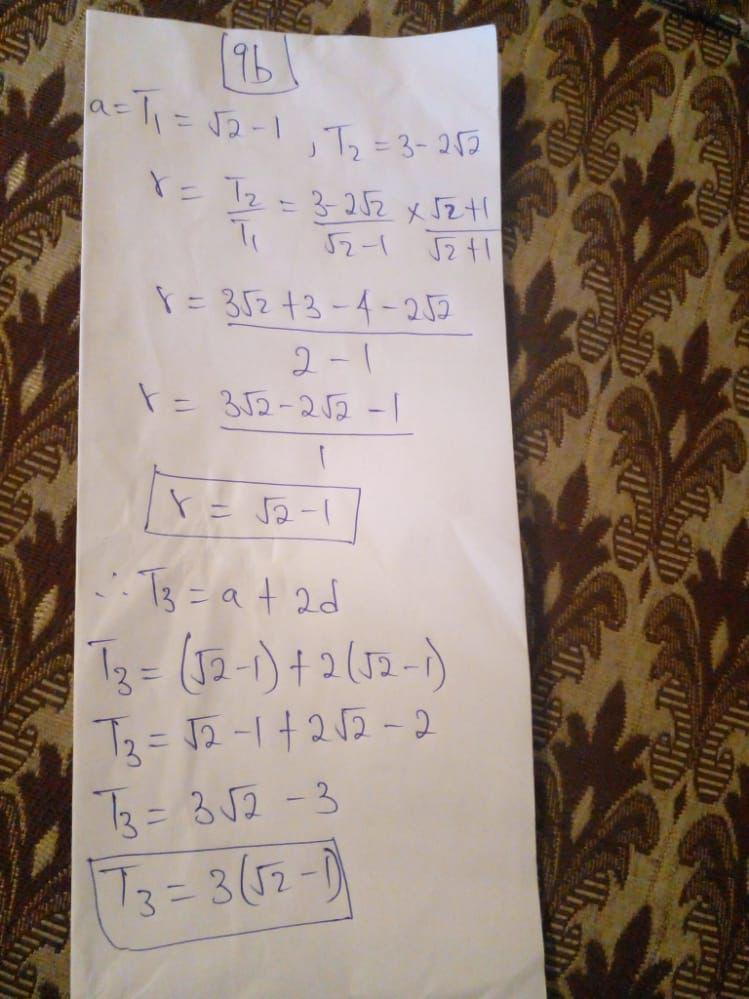 9b
a = T₁ = √2 - 1 , T₂ = 3 - 2√2
r = T₂/T₁ = 3-2√2/√2-1 × √2+1/√2+1
r = 3√2 + 3 - 4 - 2√2 / 2 - 1
r = 3√2 - 2√2 - 1 / 1
r = √2 - 1
∴ T₃ = a + 2d
T₃ = (√2-1) + 2(√2-1)
T₃ = √2 - 1 + 2√2 - 2
T₃ = 3√2 - 3
T₃ = 3(√2 - 1)